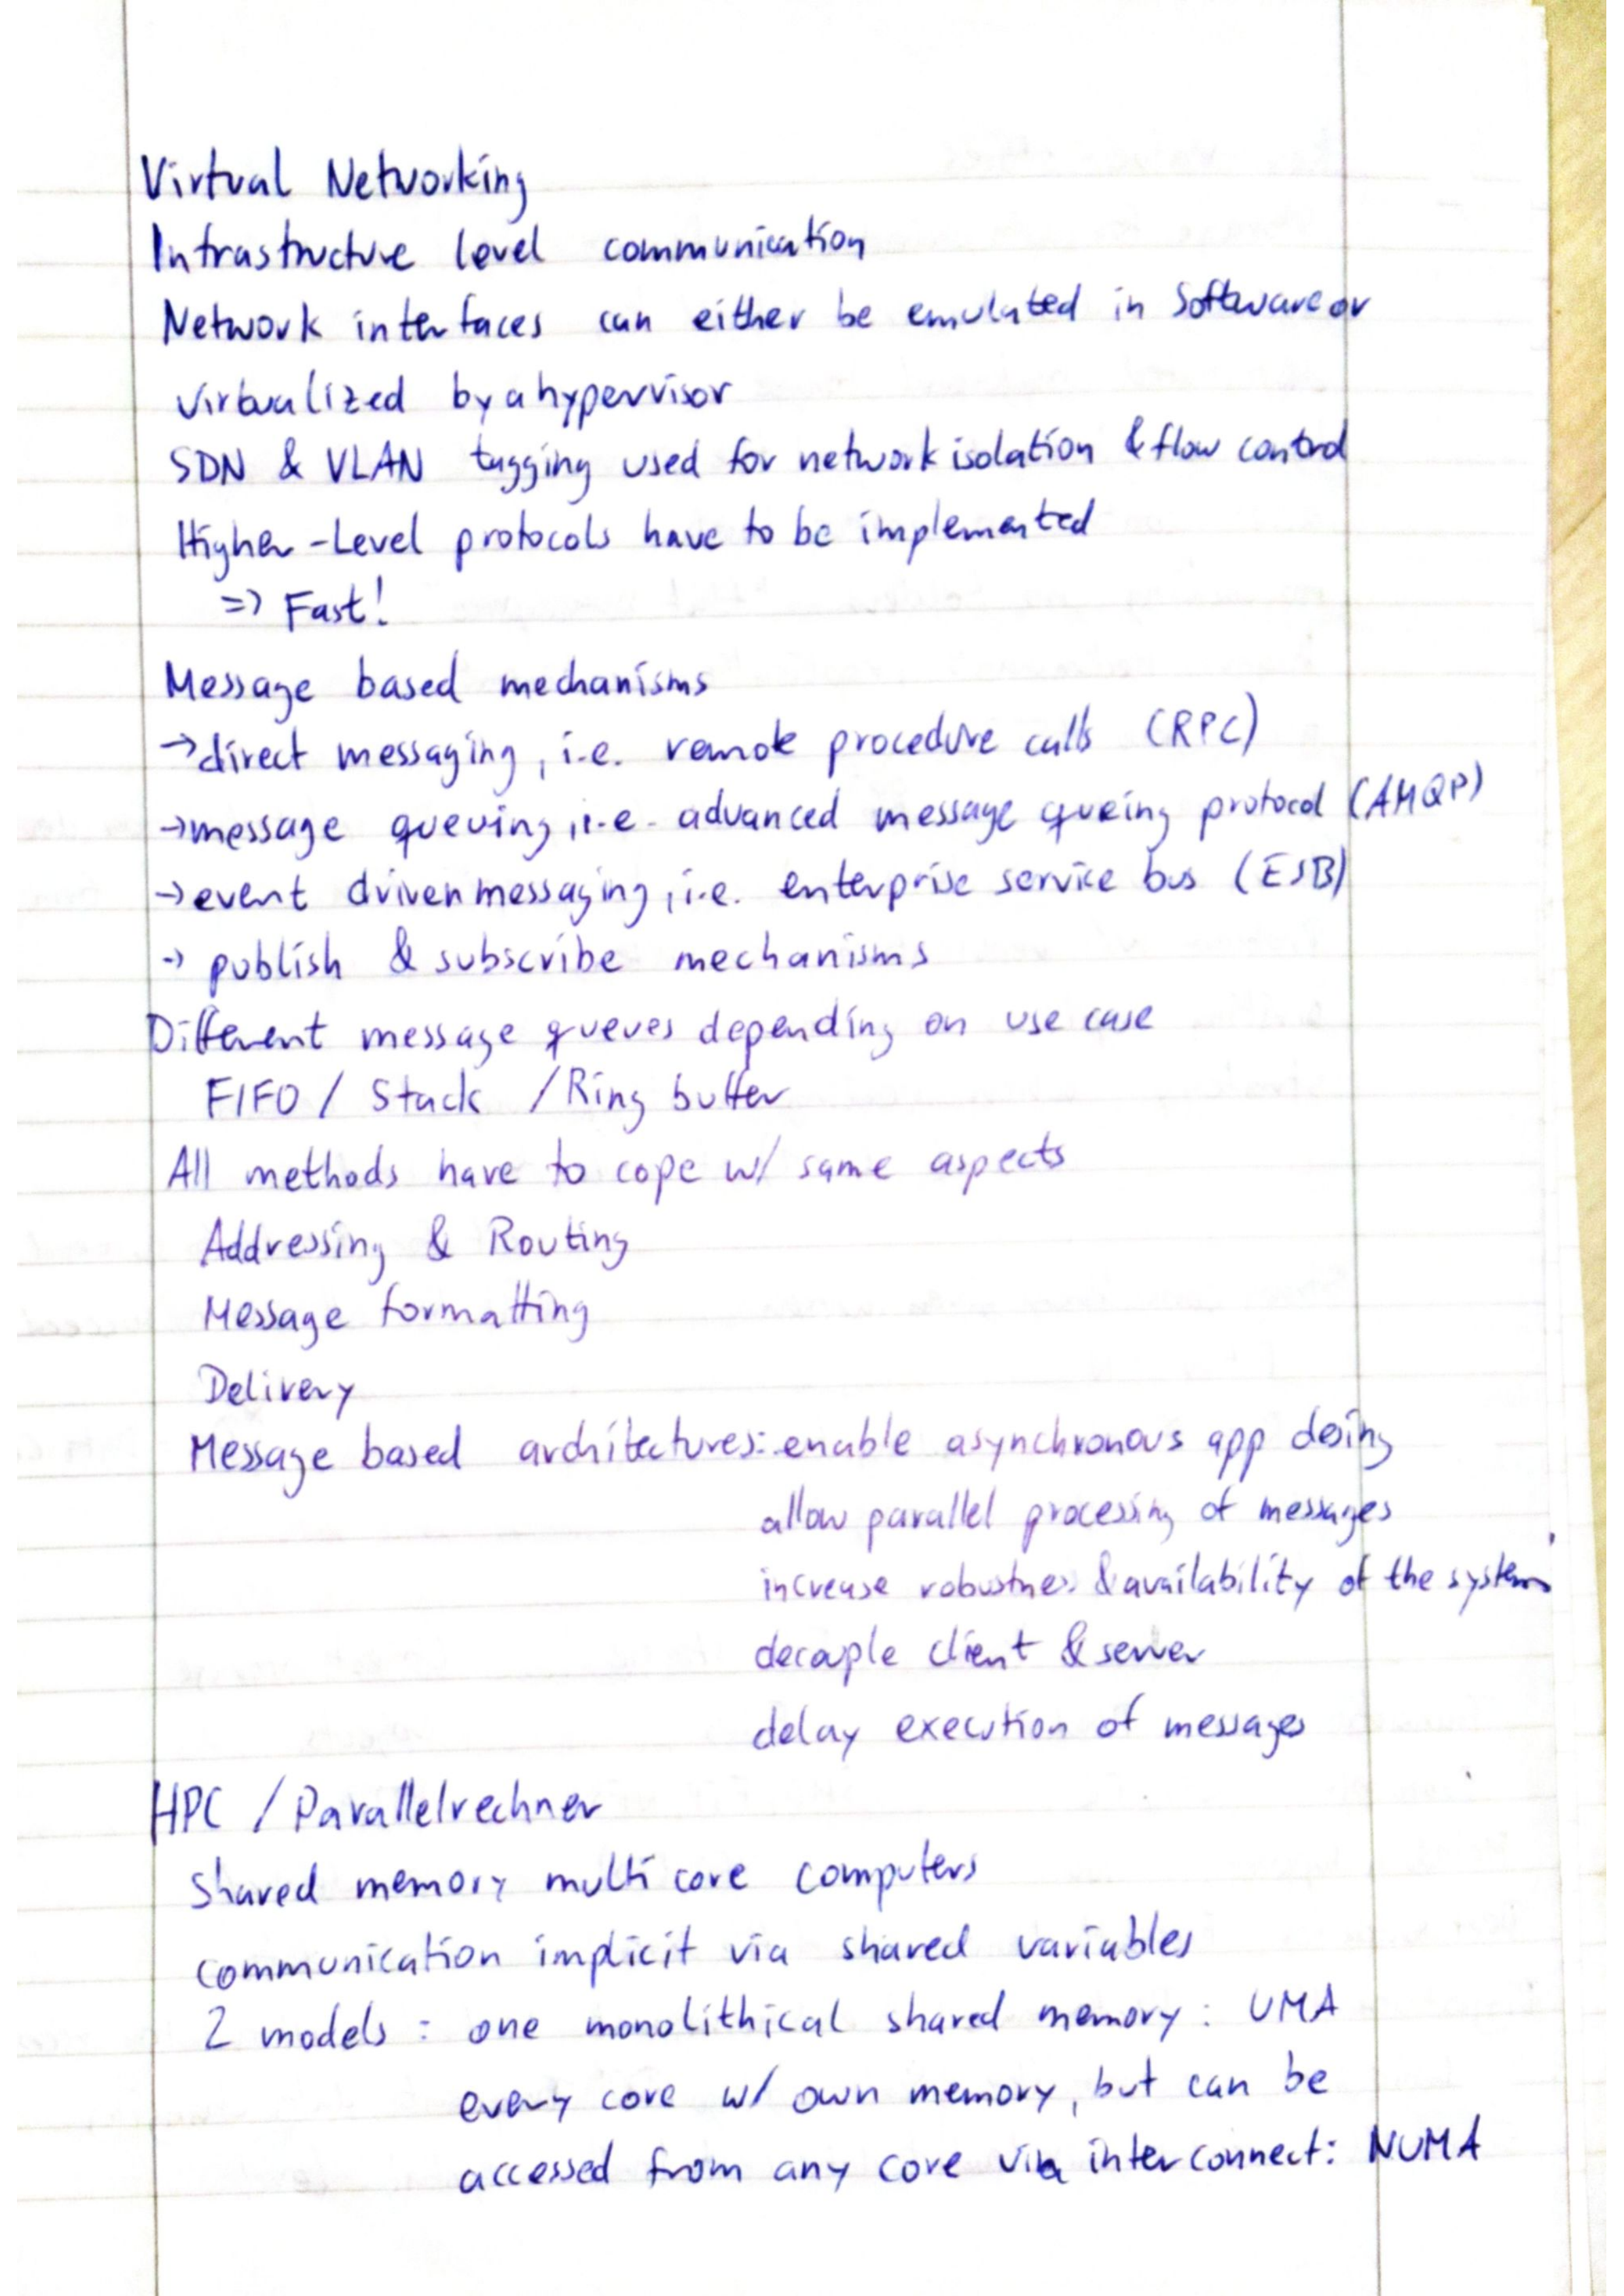 Virtual Networking
Infrastructure level communication
Network interfaces can either be emulated in Software or
virtualized by a hypervisor
SDN & VLAN tagging used for network isolation & flow control
Higher-Level protocols have to be implemented
=> Fast!
Message based mechanisms
→ direct messaging, i.e. remote procedure calls (RPC)
→ message queuing, i.e. advanced message queing protocol (AMQP)
→ event driven messaging, i.e. enterprise service bus (ESB)
→ publish & subscribe mechanisms
Different message queues depending on use case
FIFO / Stack / Ring buffer
All methods have to cope w/ same aspects
Addressing & Routing
Message formatting
Delivery
Message based architectures: enable asynchronous app desing
allow parallel processing of messages
increase robustnes & availability of the system
decouple client & server
delay execution of messages
HPC / Parallelrechner
Shared memory multi core computers
communication implicit via shared variables
2 models : one monolithical shared memory : UMA
every core w/ own memory, but can be
accessed from any core via interconnect: NUMA